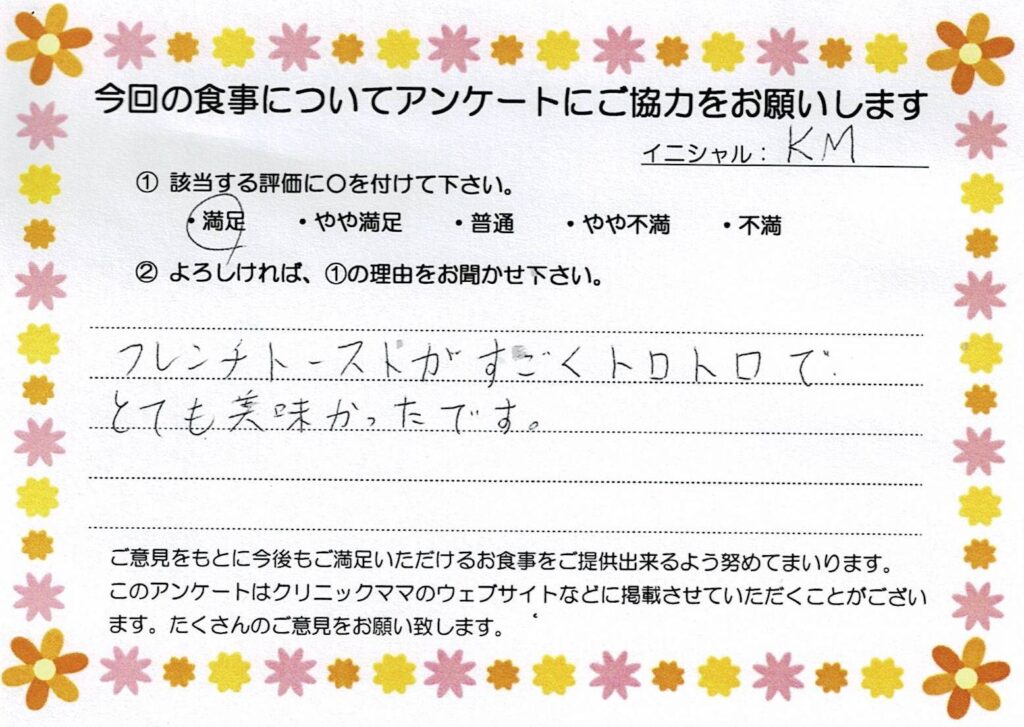 今回の食事についてアンケートにご協力をお願いします
イニシャル： KM
① 該当する評価に○を付けて下さい。
・満足 ・やや満足 ・普通 ・やや不満 ・不満
② よろしければ、①の理由をお聞かせ下さい。
フレンチトーストがすごくトロトロで
とても美味かったです。
ご意見をもとに今後もご満足いただけるお食事をご提供出来るよう努めてまいります。
このアンケートはクリニックママのウェブサイトなどに掲載させていただくことがござい
ます。たくさんのご意見をお願い致します。